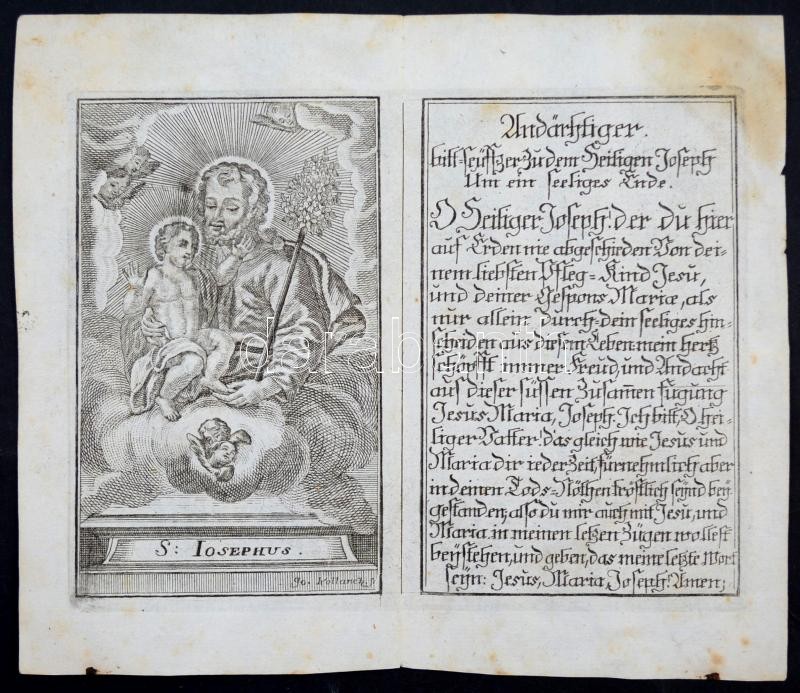 S: IOSEPHUS.
Andächtiger.
bitt-seüffzer Zu dem Heiligen Joseph
Um ein seeliges Ende.
O Heiliger Joseph! der du hier
auf Erden nie abgeschieden Von dei-
nem liebsten Pfleg-Kind Jesu,
und deiner Gespons Maria, als
nur allein durch dein seeliges hin-
scheiden aus diesem Leben mein hertz
schöpfft immer Freud, und Andacht
aus dieser süssen Zusam̄en fugung
Jesus Maria, Joseph. Ich bitt, O hei-
liger Vatter! das gleich wie Jesus und
Maria dir ieder Zeit, fürnehmlich aber
in deinen Tods-Nöthen tröstlich seynd bey
gestanden; also du mir auch mit Jesu, und
Maria in meinen letzen Zügen wollest
beystehen, und geben, das meine letzte Wort
seyn: Jesus, Maria, Joseph! Amen;
darabanth